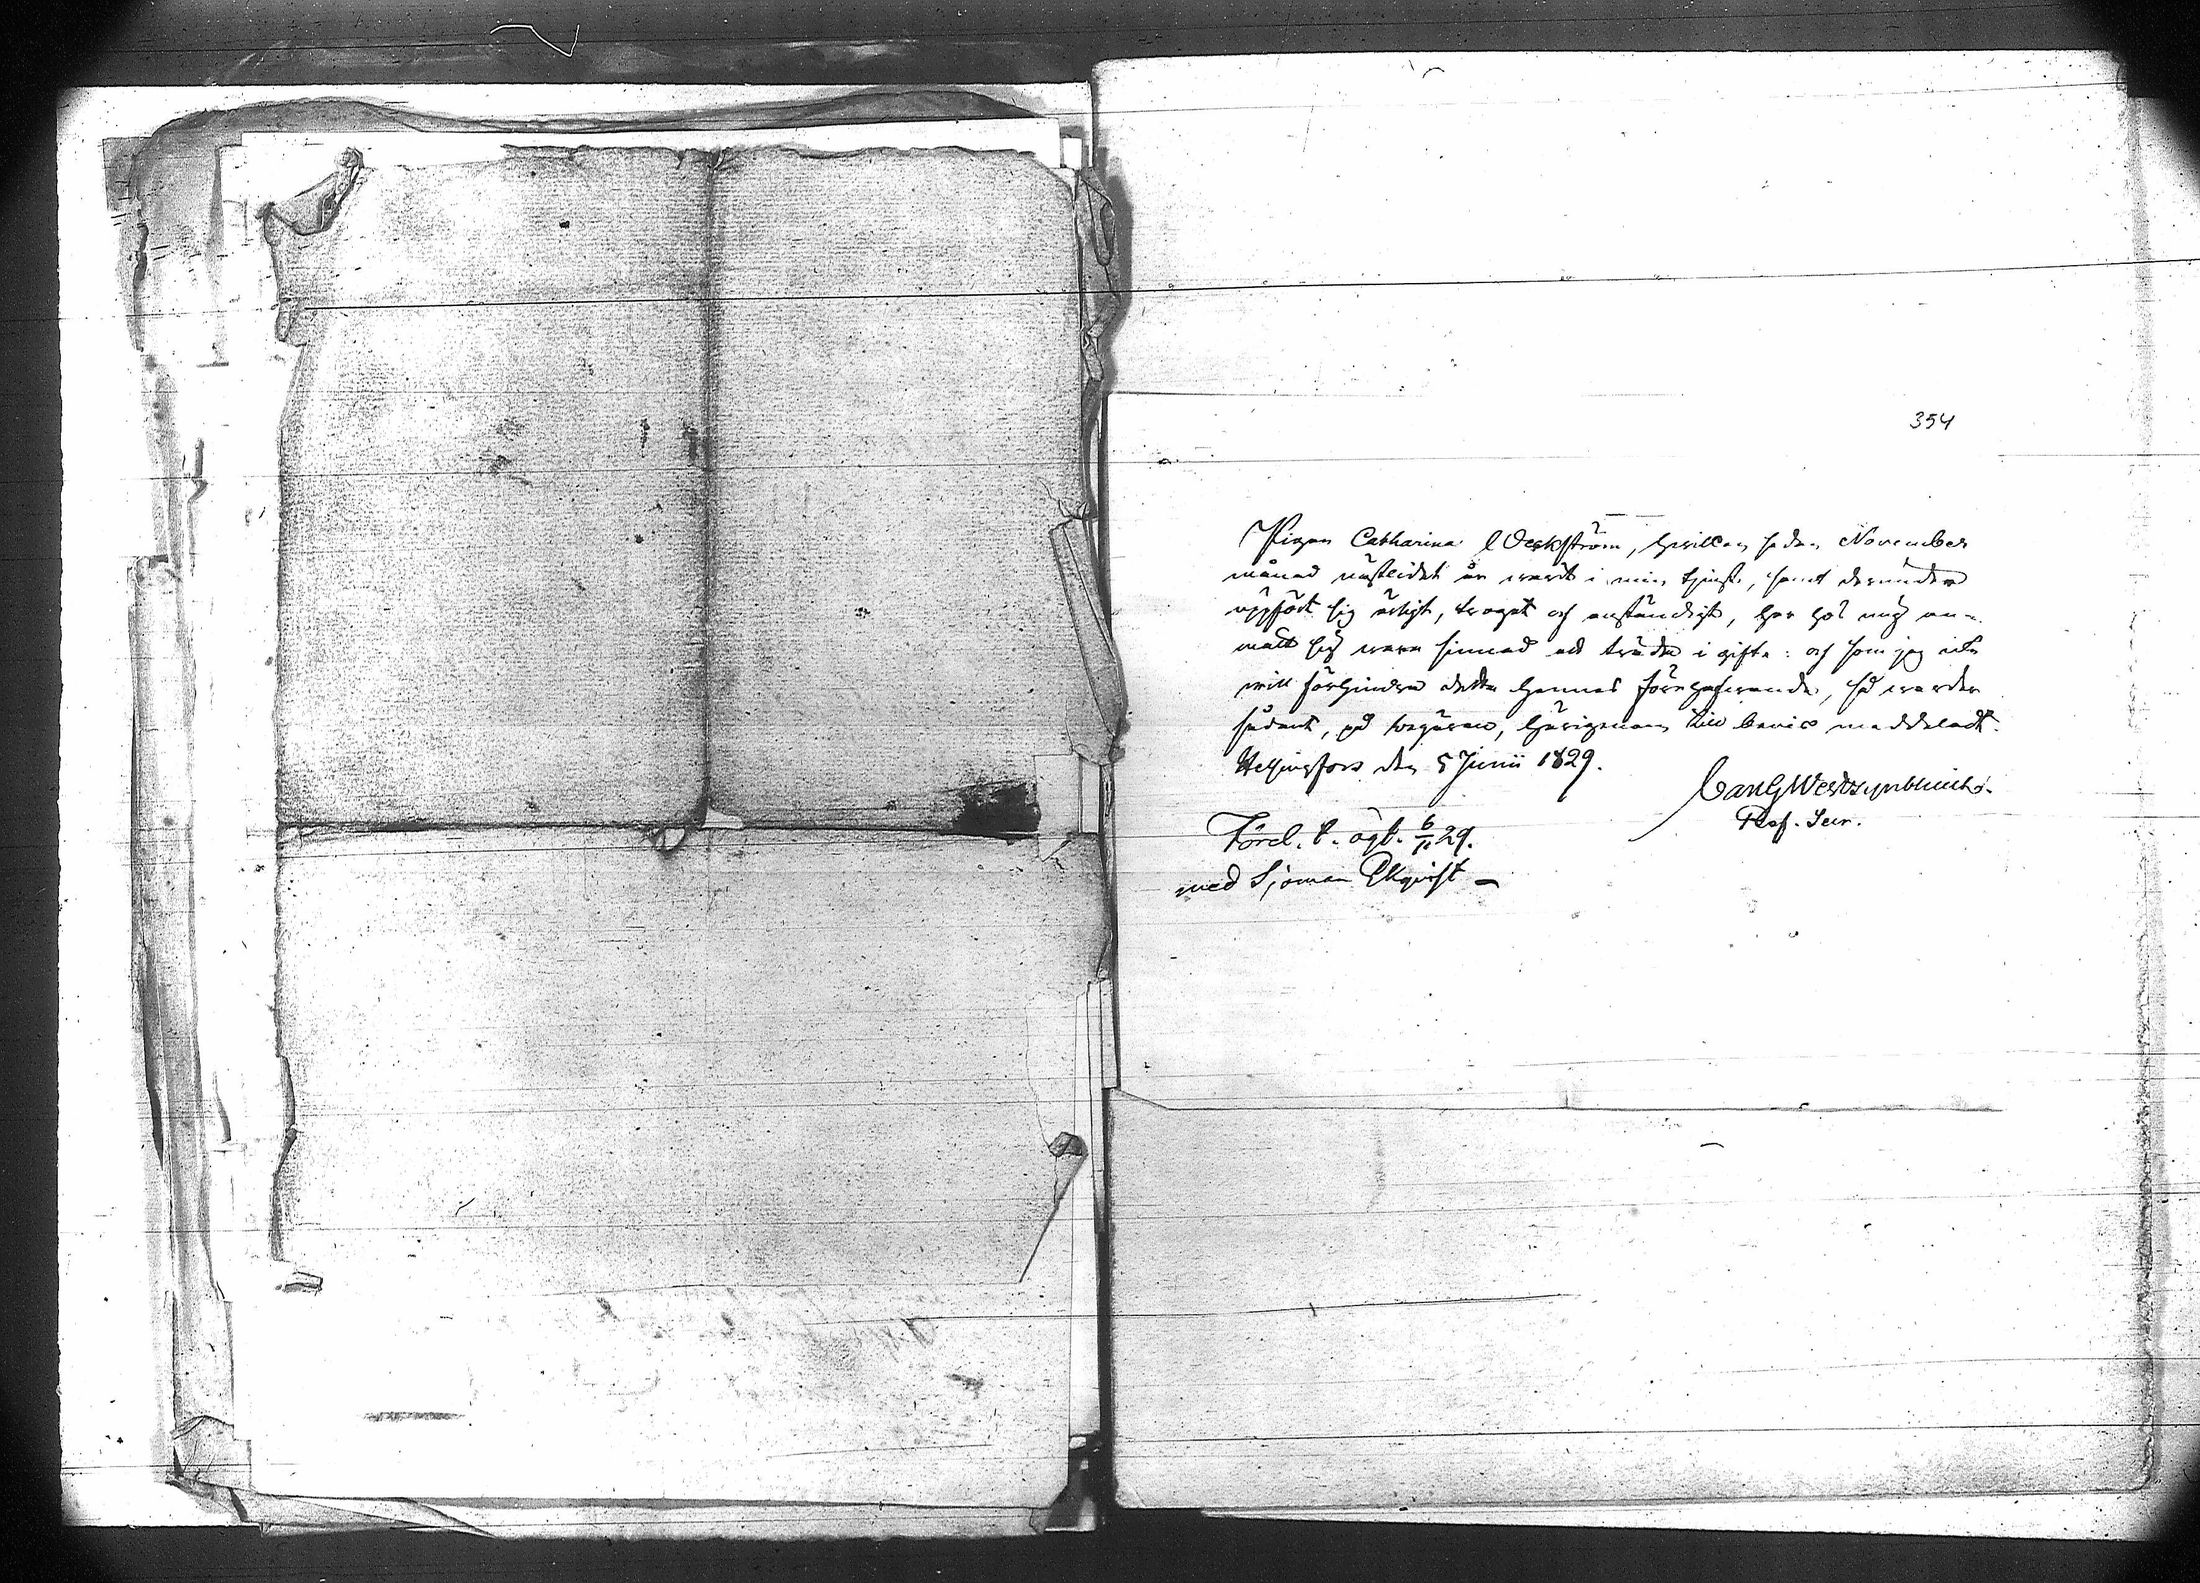 354
Pigan Catharina Weckström, hwilken sedan November
månad nästledit år warit i min tjenst, samt derunder
uppfört sig ärligt, troget och anständigt, har hos mig an-
mält sig wara sinnad att träda i gifte: och som jag icke
will förhindra detta hennes förehafwande, så warder
sådant, på begäran, härigenom till bewis meddeladt.
Helsingfors den 5 Junii 1829.
Carl G
Prof.
Förel. t. ägt. 6/11 29.
med Sjöman Ekqvist